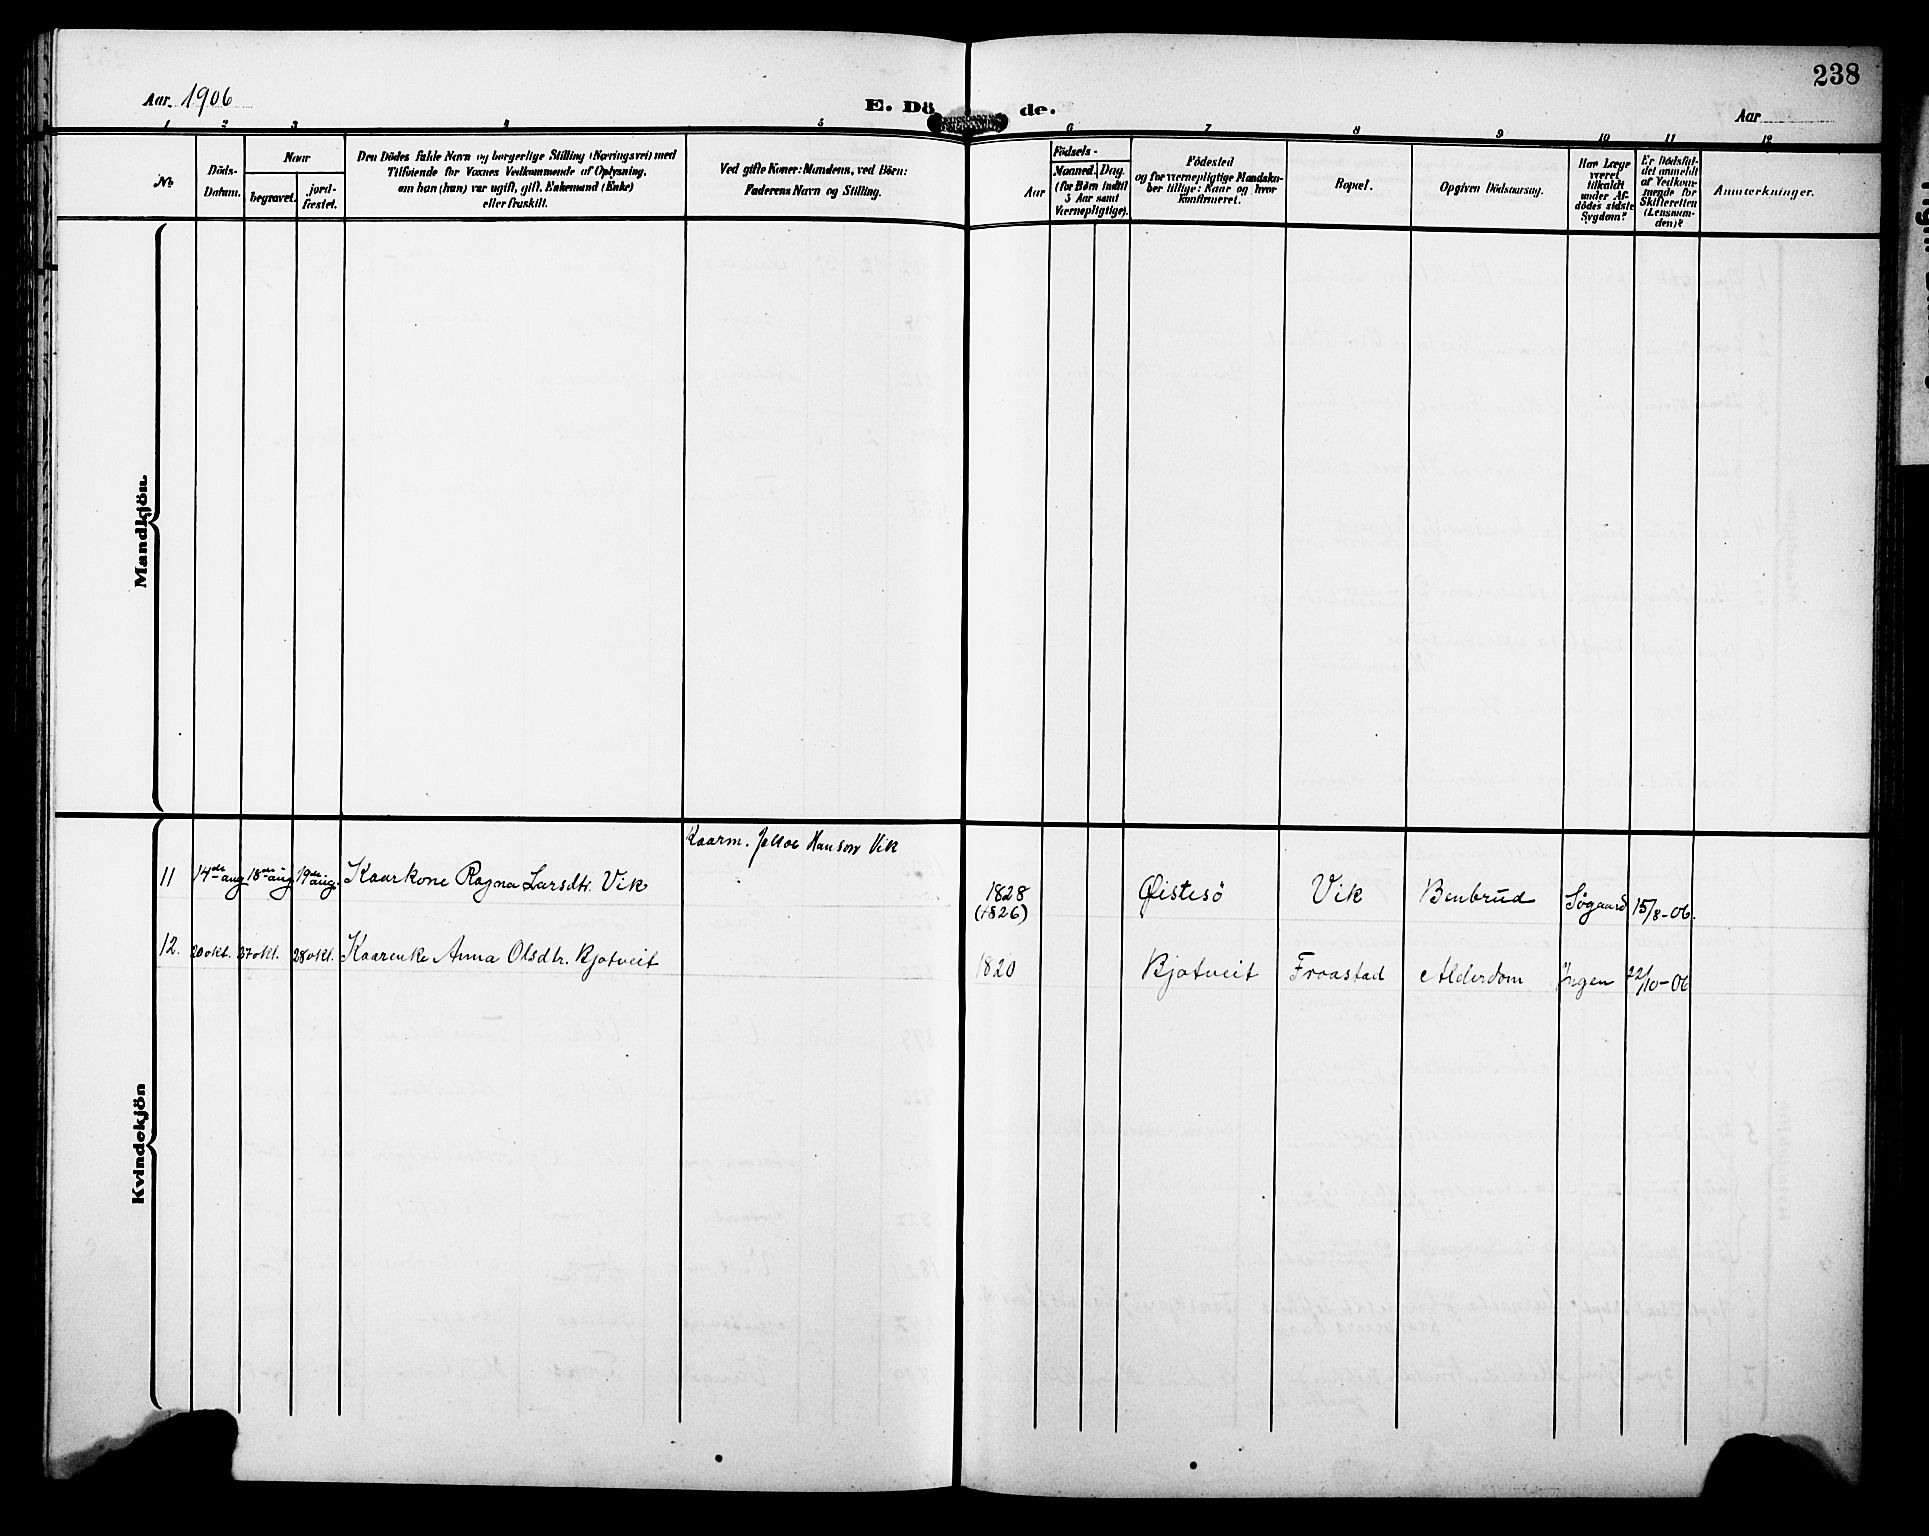 238
Aar. 1906
E. Dö de.
Aar
1 2 3 4 5 6 7 8 9 10 11 12
No
Döds-
Datum.
Naar
begravet.
jord-
fæstet.
Den Dödes fulde Navn og borgerlige Stilling (Næringsvei) med
Tilføiende for Voxnes Vedkommende af Oplysning,
om han (hun) var ugift, gift, Enkemand (Enke)
eller fraskilt.
Ved gifte Koner: Mandens, ved Börn:
Faderens Navn og Stilling.
Födsels-
Aar
Maaned. Dag.
(for Börn indtil
5 Aar samt
Værnepligtige).
Födested
og for værnepligtige Mandska-
ber tillige: Naar og hvor
konfirmeret.
Bopæl.
Opgiven Dödsaarsag.
Har Læge
været
tilkaldt
under Af-
dödes sidste
Sygdom?
Er Dödsfal-
det anmeldt
af Vedkom-
mende for
Skifteretten
(Lensman-
den)?
Anmærkninger.
Mandkjön.
Kvindekjön
Kaarm. Jakob Hanson Vik
11 14de aug 18de aug 19de aug. Kaarkone Ragna Larsdtr. Vik 1828 Øistesö Vik Benbrud Søgaard 15/8-06.
(1826)
12. 20 okt. 27 okt. 28 okt. Kaarenke Anna Olsdtr. Bjotveit 1820 Bjotveit Fraastad Alderdom Ingen 22/10-06